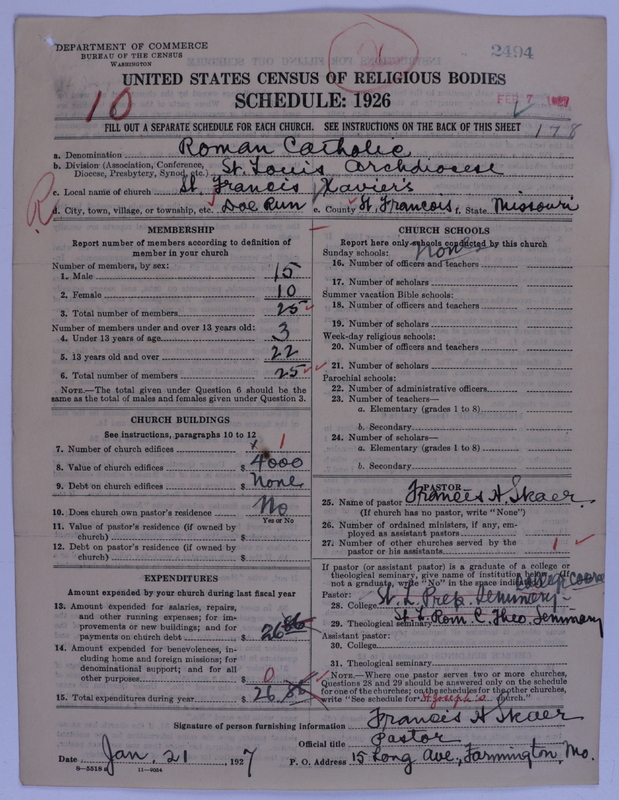 DEPARTMENT OF COMMERCE
BUREAU OF THE CENSUS
WASHINGTON
2494
UNITED STATES CENSUS OF RELIGIOUS BODIES
SCHEDULE: 1926
10
FEB 7 1927
FILL OUT A SEPARATE SCHEDULE FOR EACH CHURCH. SEE INSTRUCTIONS ON THE BACK OF THIS SHEET
178
a. Denomination Roman Catholic
b. Division (Association, Conference, Diocese, Presbytery, Synod, etc.) St. Louis Archdiocese
c. Local name of church St. Francis Xavier's
R
d. City, town, village, or township, etc. Doe Run e. County St. Francois f. State Missouri
MEMBERSHIP
Report number of members according to definition of
member in your church
Number of members, by sex:
1. Male 15
2. Female 10
3. Total number of members 25
Number of members under and over 13 years old:
4. Under 13 years of age 3
5. 13 years old and over 22
6. Total number of members 25
NOTE.—The total given under Question 6 should be the
same as the total of males and females given under Question 3.
CHURCH BUILDINGS
See instructions, paragraphs 10 to 12
7. Number of church edifices 1
8. Value of church edifices $ 4000
9. Debt on church edifices $ None
10. Does church own pastor's residence No
Yes or No
11. Value of pastor's residence (if owned by
church) $
12. Debt on pastor's residence (if owned by
church) $
EXPENDITURES
Amount expended by your church during last fiscal year
13. Amount expended for salaries, repairs,
and other running expenses; for im-
provements or new buildings; and for
payments on church debt $ 26 86
14. Amount expended for benevolences, in-
cluding home and foreign missions; for
denominational support; and for all
other purposes $ 0
15. Total expenditures during year $ 26 86
CHURCH SCHOOLS
Report here only schools conducted by this church
None
Sunday schools:
16. Number of officers and teachers
17. Number of scholars
Summer vacation Bible schools:
18. Number of officers and teachers
19. Number of scholars
Week-day religious schools:
20. Number of officers and teachers
21. Number of scholars
Parochial schools:
22. Number of administrative officers
23. Number of teachers—
a. Elementary (grades 1 to 8)
b. Secondary
24. Number of scholars—
a. Elementary (grades 1 to 8)
b. Secondary
PASTOR
25. Name of pastor Francis H. Skaer
(If church has no pastor, write "None")
26. Number of ordained ministers, if any, em-
ployed as assistant pastors
27. Number of other churches served by the
pastor or his assistants 1
If pastor (or assistant pastor) is a graduate of a college or
theological seminary, give name of institution below. (If
not a graduate, write "No" in the space indicated.)
Pastor:
28. College St. L. Prep. Seminary
29. Theological seminary St. L. Rom. C. Theo. Seminary
Assistant pastor:
30. College
31. Theological seminary
NOTE.—Where one pastor serves two or more churches,
Questions 28 and 29 should be answered only on the schedule
for one of the churches; on the schedules for the other churches,
write "See schedule for St Joseph's church."
Signature of person furnishing information Francis H Skaer
Official title Pastor
Date Jan. 21, 1927
P. O. Address 15 Long Ave., Farmington, Mo.
6—5518 a 11—9054